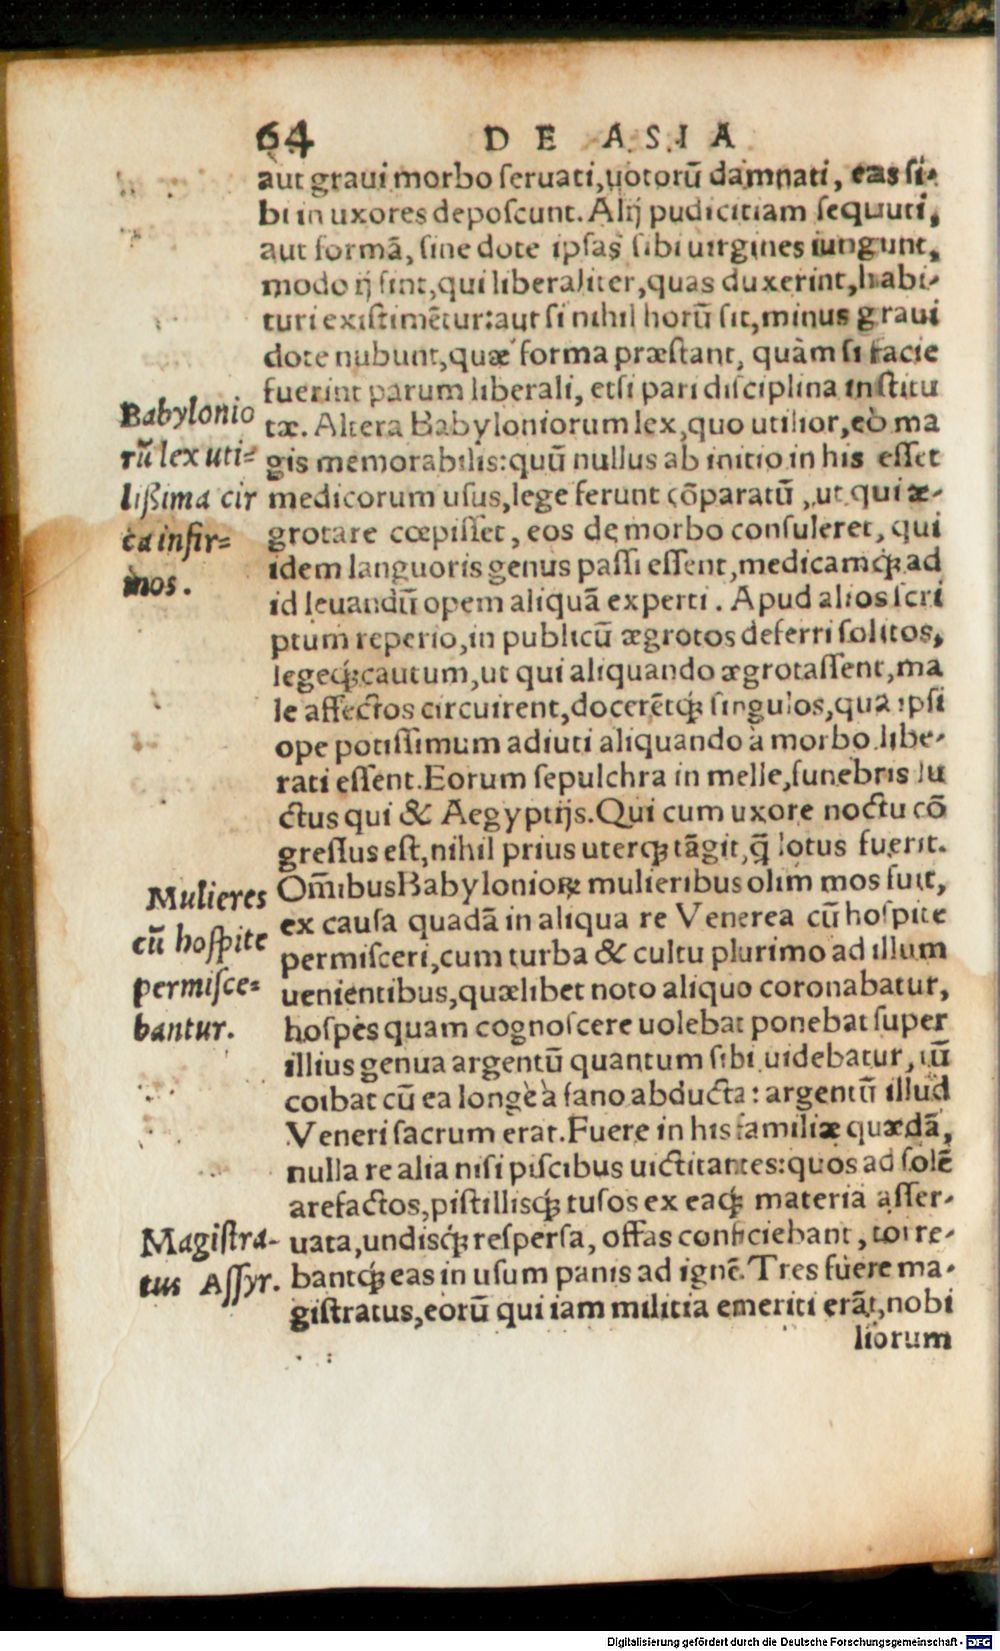 64 DE ASIA
aut graui morbo seruati, uotorũ damnati, eas si-
bi in uxores deposcunt. Alij pudicitiam sequuti,
aut formã, sine dote ipsas sibi uirgines iungunt,
modo ij sint, qui liberaliter, quas duxerint, habi-
turi existimẽtur: aut si nihil horũ sit, minus graui
dote nubunt, quæ forma præstant, quàm si facie
fuerint parum liberali, etsi pari disciplina institu
tæ. Altera Babyloniorum lex, quo utilior, eò ma
gis memorabilis: quũ nullus ab initio in his esset
medicorum usus, lege ferunt cõparatũ, ut qui æ-
grotare cœpisset, eos de morbo consuleret, qui
idem languoris genus passi essent, medicamq́; ad
id leuandũ opem aliquã experti. Apud alios scri
ptum reperio, in publicũ ægrotos deferri solitos,
legeq́; cautum, ut qui aliquando ægrotassent, ma
le affectos circuirent, docerẽtq́; singulos, qua ipsi
ope potissimum adiuti aliquando à morbo libe-
rati essent. Eorum sepulchra in melle, funebris lu
ctus qui & Aegyptijs. Qui cum uxore noctu cõ
gressus est, nihil prius uterq; tãgit, q̃ lotus fuerit.
Om̃ibus Babylonioꝝ mulieribus olim mos fuit,
ex causa quadã in aliqua re Venerea cũ hospite
permisceri, cum turba & cultu plurimo ad illum
uenientibus, quælibet noto aliquo coronabatur,
hospes quam cognoscere uolebat ponebat super
illius genua argentũ quantum sibi uidebatur, tũ
coibat cũ ea longè à fano abducta: argentũ illud
Veneri sacrum erat. Fuere in his familiæ quædã,
nulla re alia nisi piscibus uictitantes: quos ad solẽ
arefactos, pistillisq́; tusos ex eaq́; materia asser-
uata, undisq́; respersa, offas conficiebant, torre-
bantq́; eas in usum panis ad ignẽ. Tres fuere ma-
gistratus, eorũ qui iam militia emeriti erãt, nobi
liorum
Babylonio
rũ lex uti=
lißima cir
ca infir=
mos.
Mulieres
cũ hospite
permisce=
bantur.
Magistra-
tus Assyr.
Digitalisierung gefördert durch die Deutsche Forschungsgemeinschaft - DFG